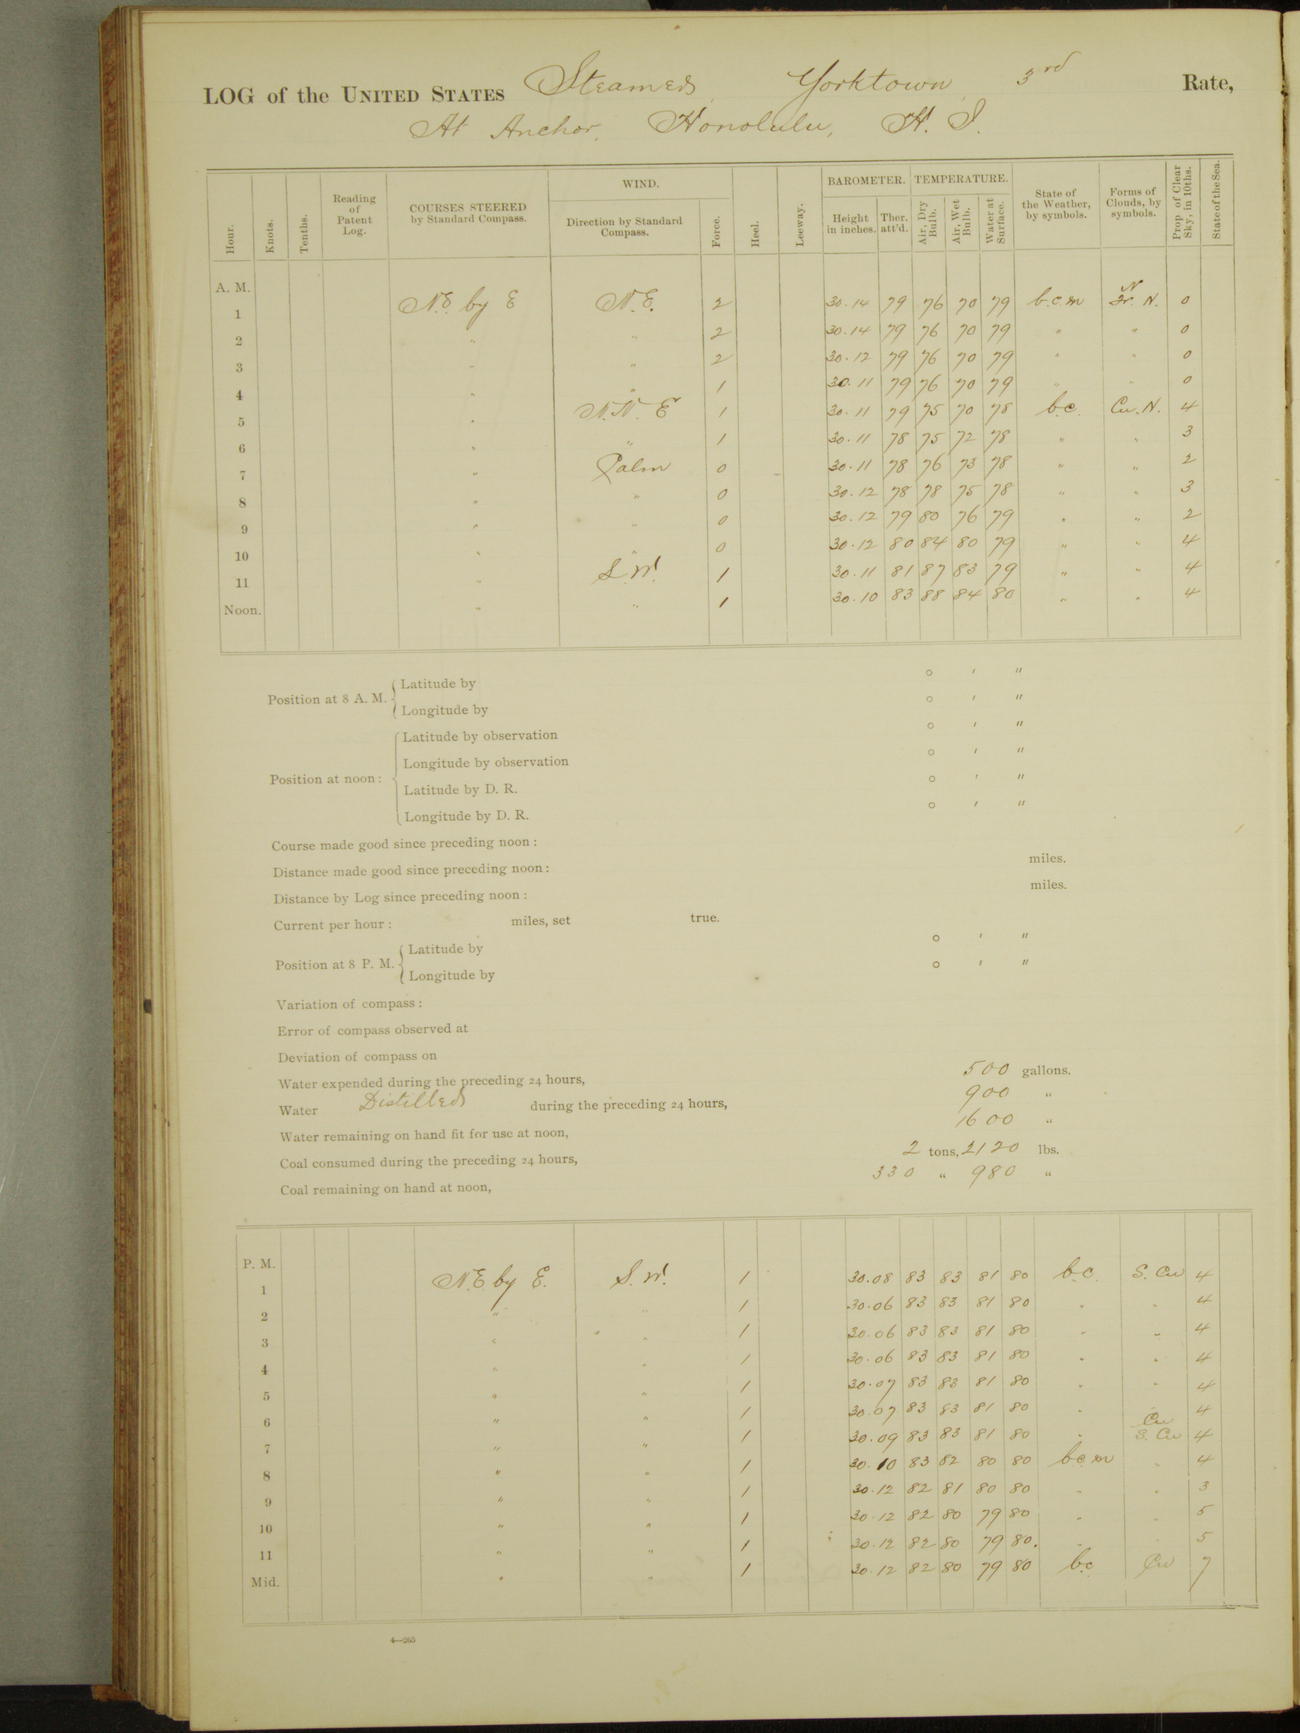 LOG of the UNITED STATES Steamer Yorktown, 3rd Rate,
At Anchor, Honolulu, H. I.
Hour. Knots. Tenths. Reading of Patent Log. COURSES STEERED by Standard Compass. WIND. Direction by Standard Compass. Force. Heel. Leeway. BAROMETER. Height in inches. Ther. att'd. TEMPERATURE. Air, Dry Bulb. Air, Wet Bulb. Water at Surface. State of the Weather, by symbols. Forms of Clouds, by symbols. Prop. of Clear Sky, in 10ths. State of the Sea.
A. M.
1 N.E. by E N.E. 2 30.14 79 76 70 79 b.c.m N. 0
2 " " 2 30.14 79 76 70 79 " " 0
3 " " 2 30.12 79 76 70 79 " " 0
4 " " 1 30.11 79 76 70 79 " " 0
5 " N.N.E 1 30.11 79 75 70 78 b.c. Cu.N. 4
6 " " 1 30.11 78 75 72 78 " " 3
7 " Calm 0 30.11 78 76 73 78 " " 2
8 " " 0 30.12 78 78 75 78 " " 3
9 " " 0 30.12 79 80 76 79 " " 2
10 " " 0 30.12 80 84 80 79 " " 4
11 " S.W. 1 30.11 81 87 83 79 " " 4
Noon. " " 1 30.10 83 88 84 80 " " 4
Position at 8 A. M. Latitude by ° ′ ″
Longitude by ° ′ ″
Position at noon: Latitude by observation ° ′ ″
Longitude by observation ° ′ ″
Latitude by D. R. ° ′ ″
Longitude by D. R. ° ′ ″
Course made good since preceding noon:
Distance made good since preceding noon: miles.
Distance by Log since preceding noon: miles.
Current per hour: miles, set true.
Position at 8 P. M. Latitude by ° ′ ″
Longitude by ° ′ ″
Variation of compass:
Error of compass observed at
Deviation of compass on
Water expended during the preceding 24 hours, 500 gallons.
Water Distilled during the preceding 24 hours, 900 "
Water remaining on hand fit for use at noon, 1600 "
Coal consumed during the preceding 24 hours, 2 tons, 2120 lbs.
Coal remaining on hand at noon, 330 " 980 "
P. M.
1 N.E. by E. S.W. 1 30.08 83 83 81 80 b.c. S.Cu 4
2 " " 1 30.06 83 83 81 80 " " 4
3 " " 1 30.06 83 83 81 80 " " 4
4 " " 1 30.06 83 83 81 80 " " 4
5 " " 1 30.07 83 83 81 80 " " 4
6 " " 1 30.07 83 83 81 80 " " 4
7 " " 1 30.09 83 83 81 80 " Cu S.Cu 4
8 " " 1 30.10 83 82 80 80 b.c.m " 4
9 " " 1 30.12 82 81 80 80 " " 3
10 " " 1 30.12 82 80 79 80 " " 5
11 " " 1 30.12 82 80 79 80. " " 5
Mid. " " 1 30.12 82 80 79 80 b.c Cu 7
4—265